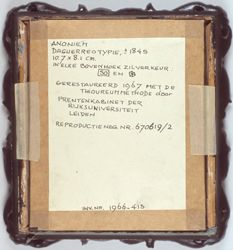 ANONIEM
DAGUERREOTYPIE, ± 1845
10.7 x 8.1 cm.
IN ELKE BOVENHOEK ZILVERKEUR
50 EN
GERESTAUREERD 1967 MET DE
THOUREUMMETHODE door
PRENTENKABINET DER
RIJKSUNIVERSITEIT
LEIDEN
REPRODUCTIENEG. NR. 670619/2
INV. NR. 1966-415